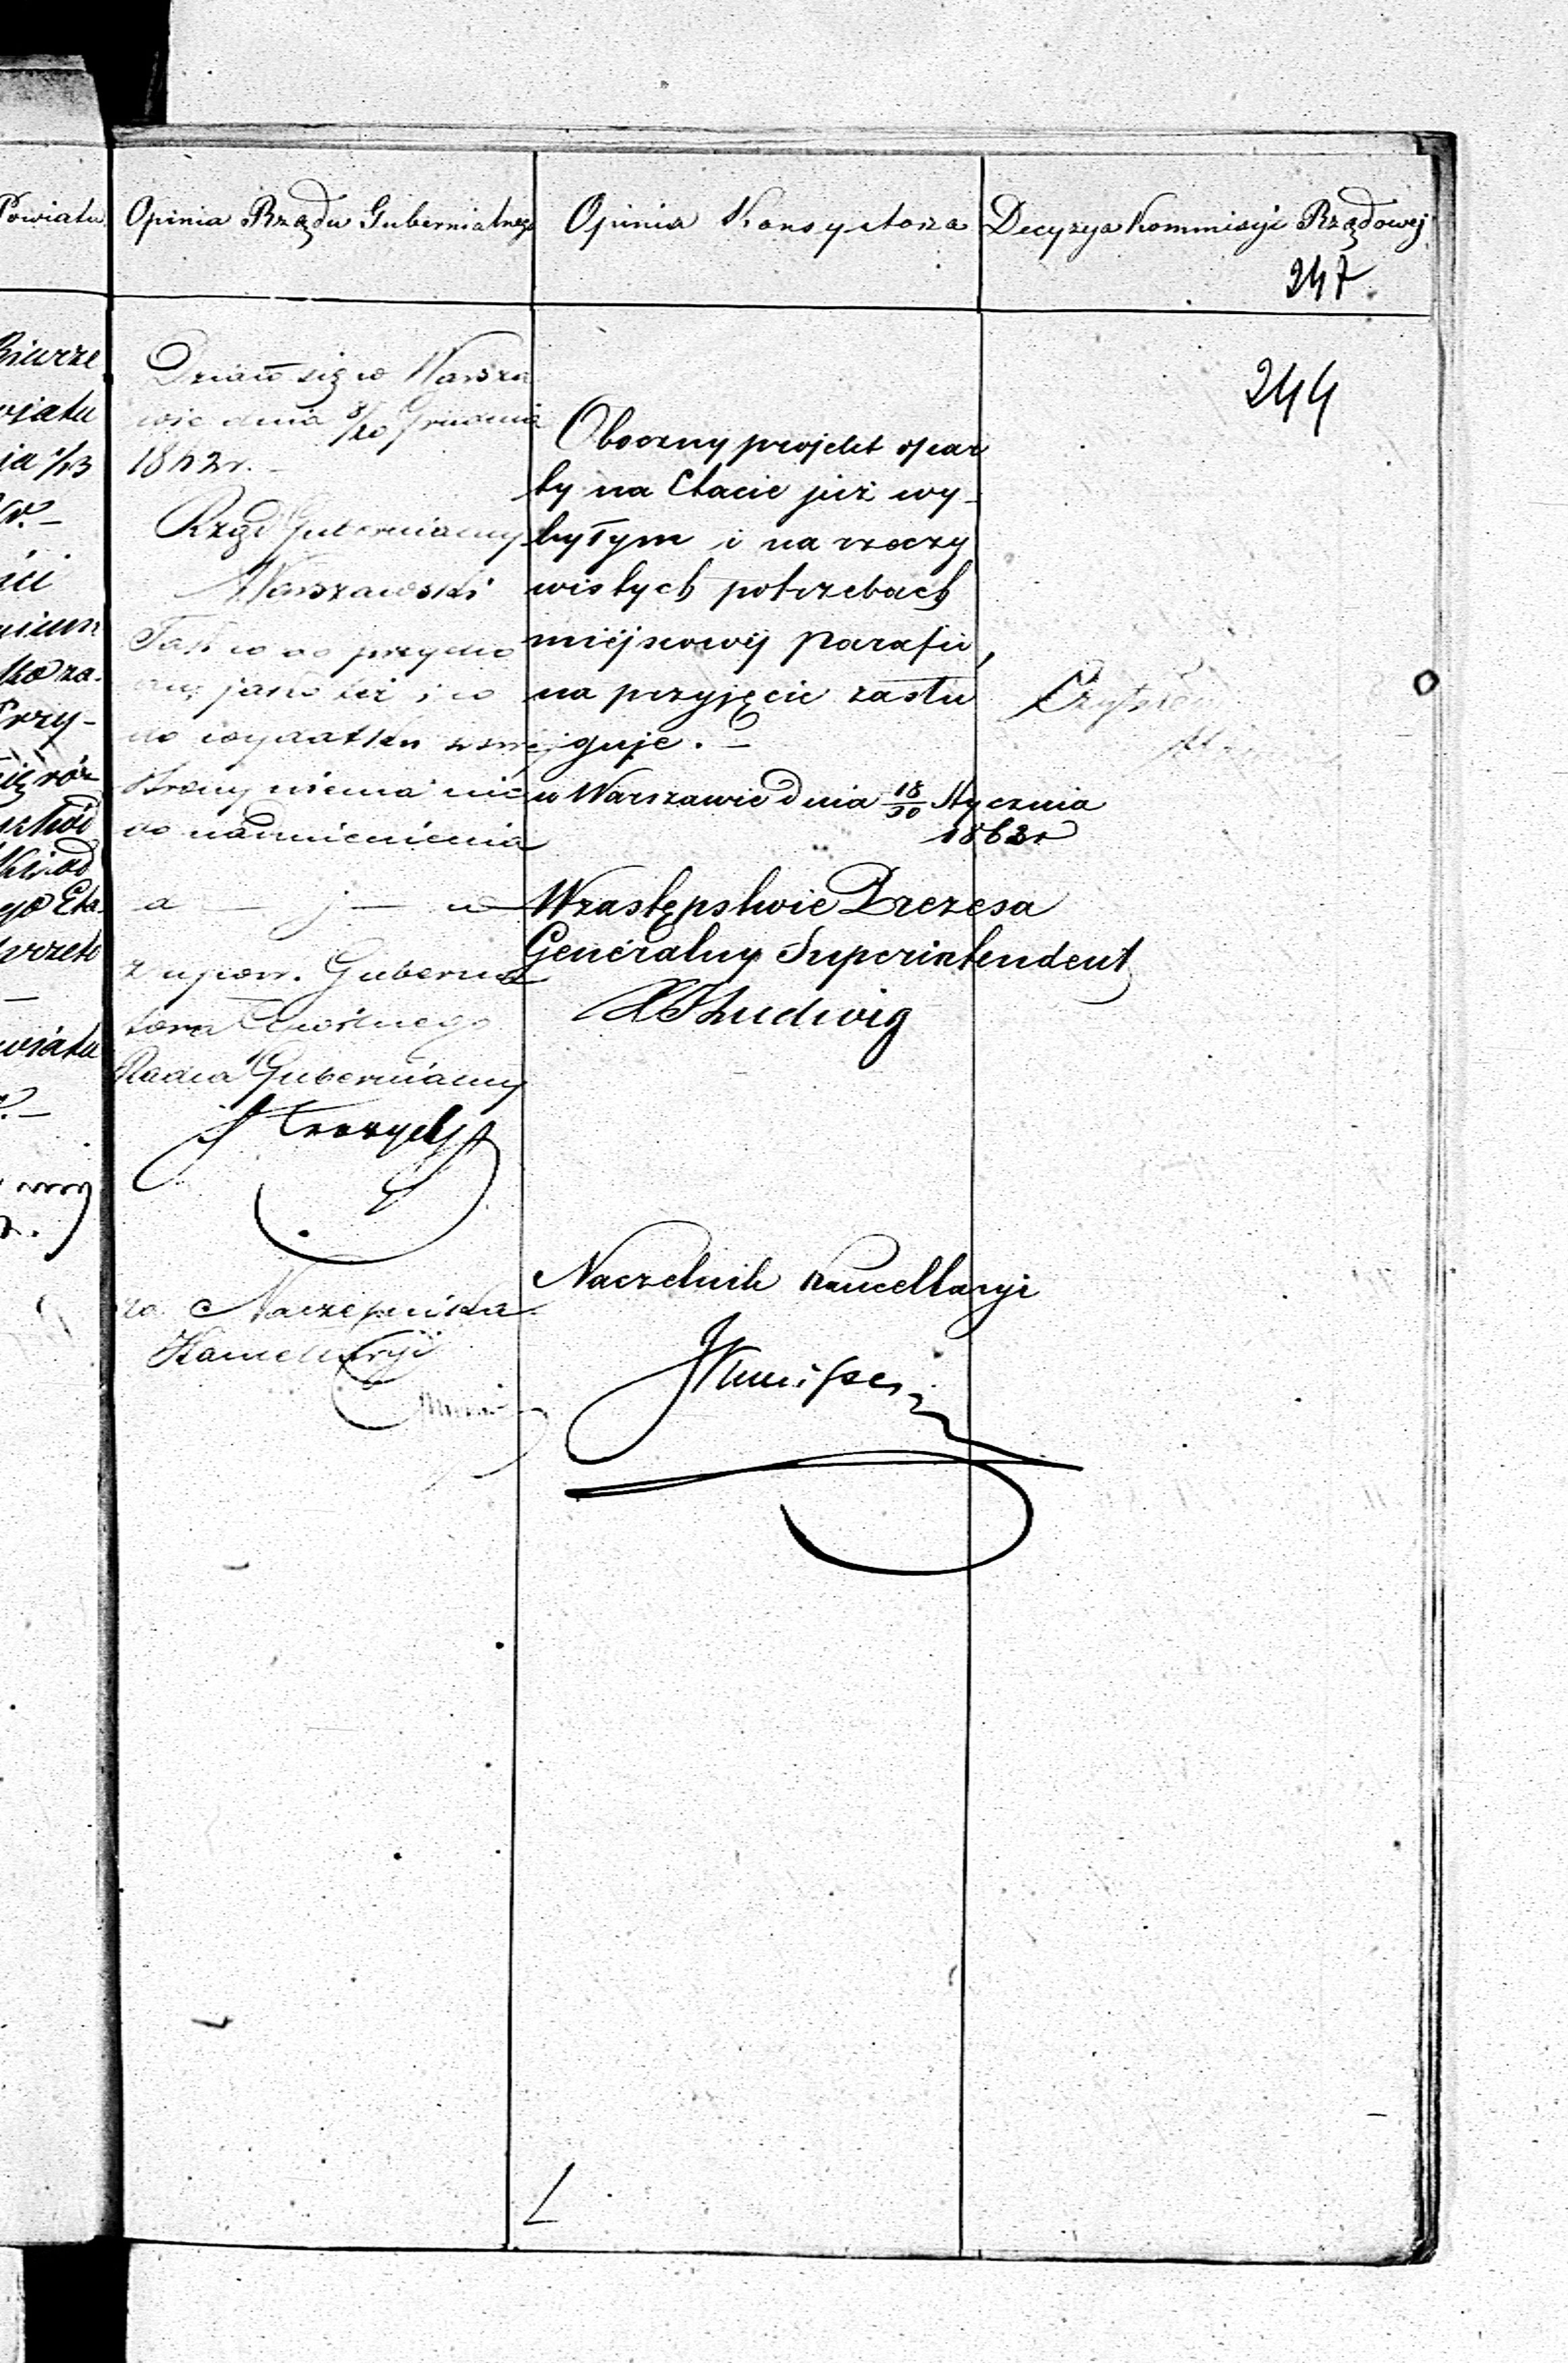 Powiatu
Opinia Rządu Gubernialnego
Opinia Konsystorza
Decyzya Kommisyi Rządowej
247
244
Działo się w Warsza
wie dnia 8/20 Grudnia
1862 r. –
Rząd Gubernialny
Warszawski
Tak co do przycho
du, jako też i co
do wydatku z swej
strony niema nic
do nadmienienia
z upow. Guberna
tora Cywilnego
Radca Gubernialny
za Naczelnika
Kancellaryi
Oboczny projekt opar
ty na Etacie już wy-
byłym i na rzeczy
wistych potrzebach
miejscowej Parafii,
na przyjęcie zasłu
guje. –
w Warszawie dnia 18/30 Stycznia
1863 r
W zastępstwie Prezesa
Generalny Superintendent
Ludwig
Naczelnik Kancellaryi